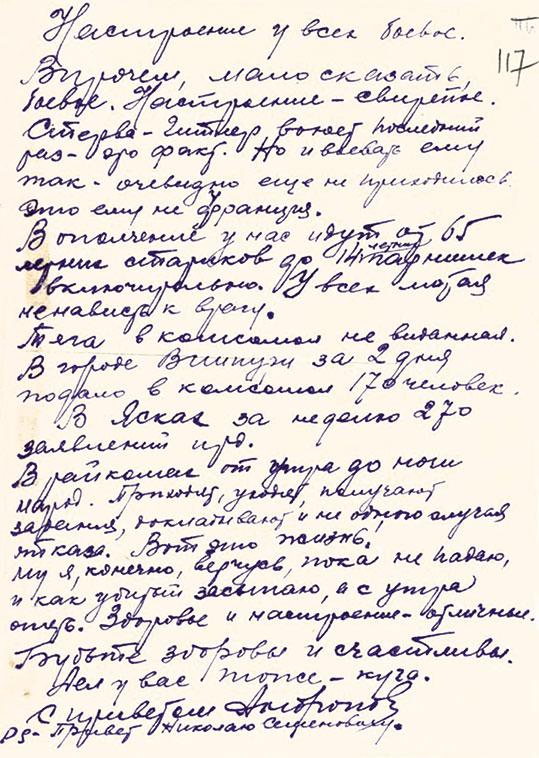 117
Настроение у всех боевое.
Впрочем, мало сказать,
боевое. Настроение – свирепое.
Стерва – Гитлер воюет последний
раз – это факт. Но и воевать ему
так – очевидно еще не приходилось.
Это ему не Франция.
В ополчение у нас идут от 65
летних стариков до 14 летних парнишек
включительно. У всех лютая
ненависть к врагу.
Тяга в комсомол не виданная.
В городе Виипури за 2 дня
подало в комсомол 170 человек.
В Ясках за неделю 270
заявлений и т.д.
В райкомах от утра до ночи
народ. Приходят, уходят, получают
задания, докладывают и не одного случая
отказа. Вот это жизнь.
Ну я, конечно, верчусь, пока не падаю,
и как убитый засыпаю, а с утра
опять. Здоровье и настроение – отличные.
Будьте здоровы и счастливы.
Дел у вас тоже – куча.
С приветом Андропов
PS – Привет Николаю Семеновичу.